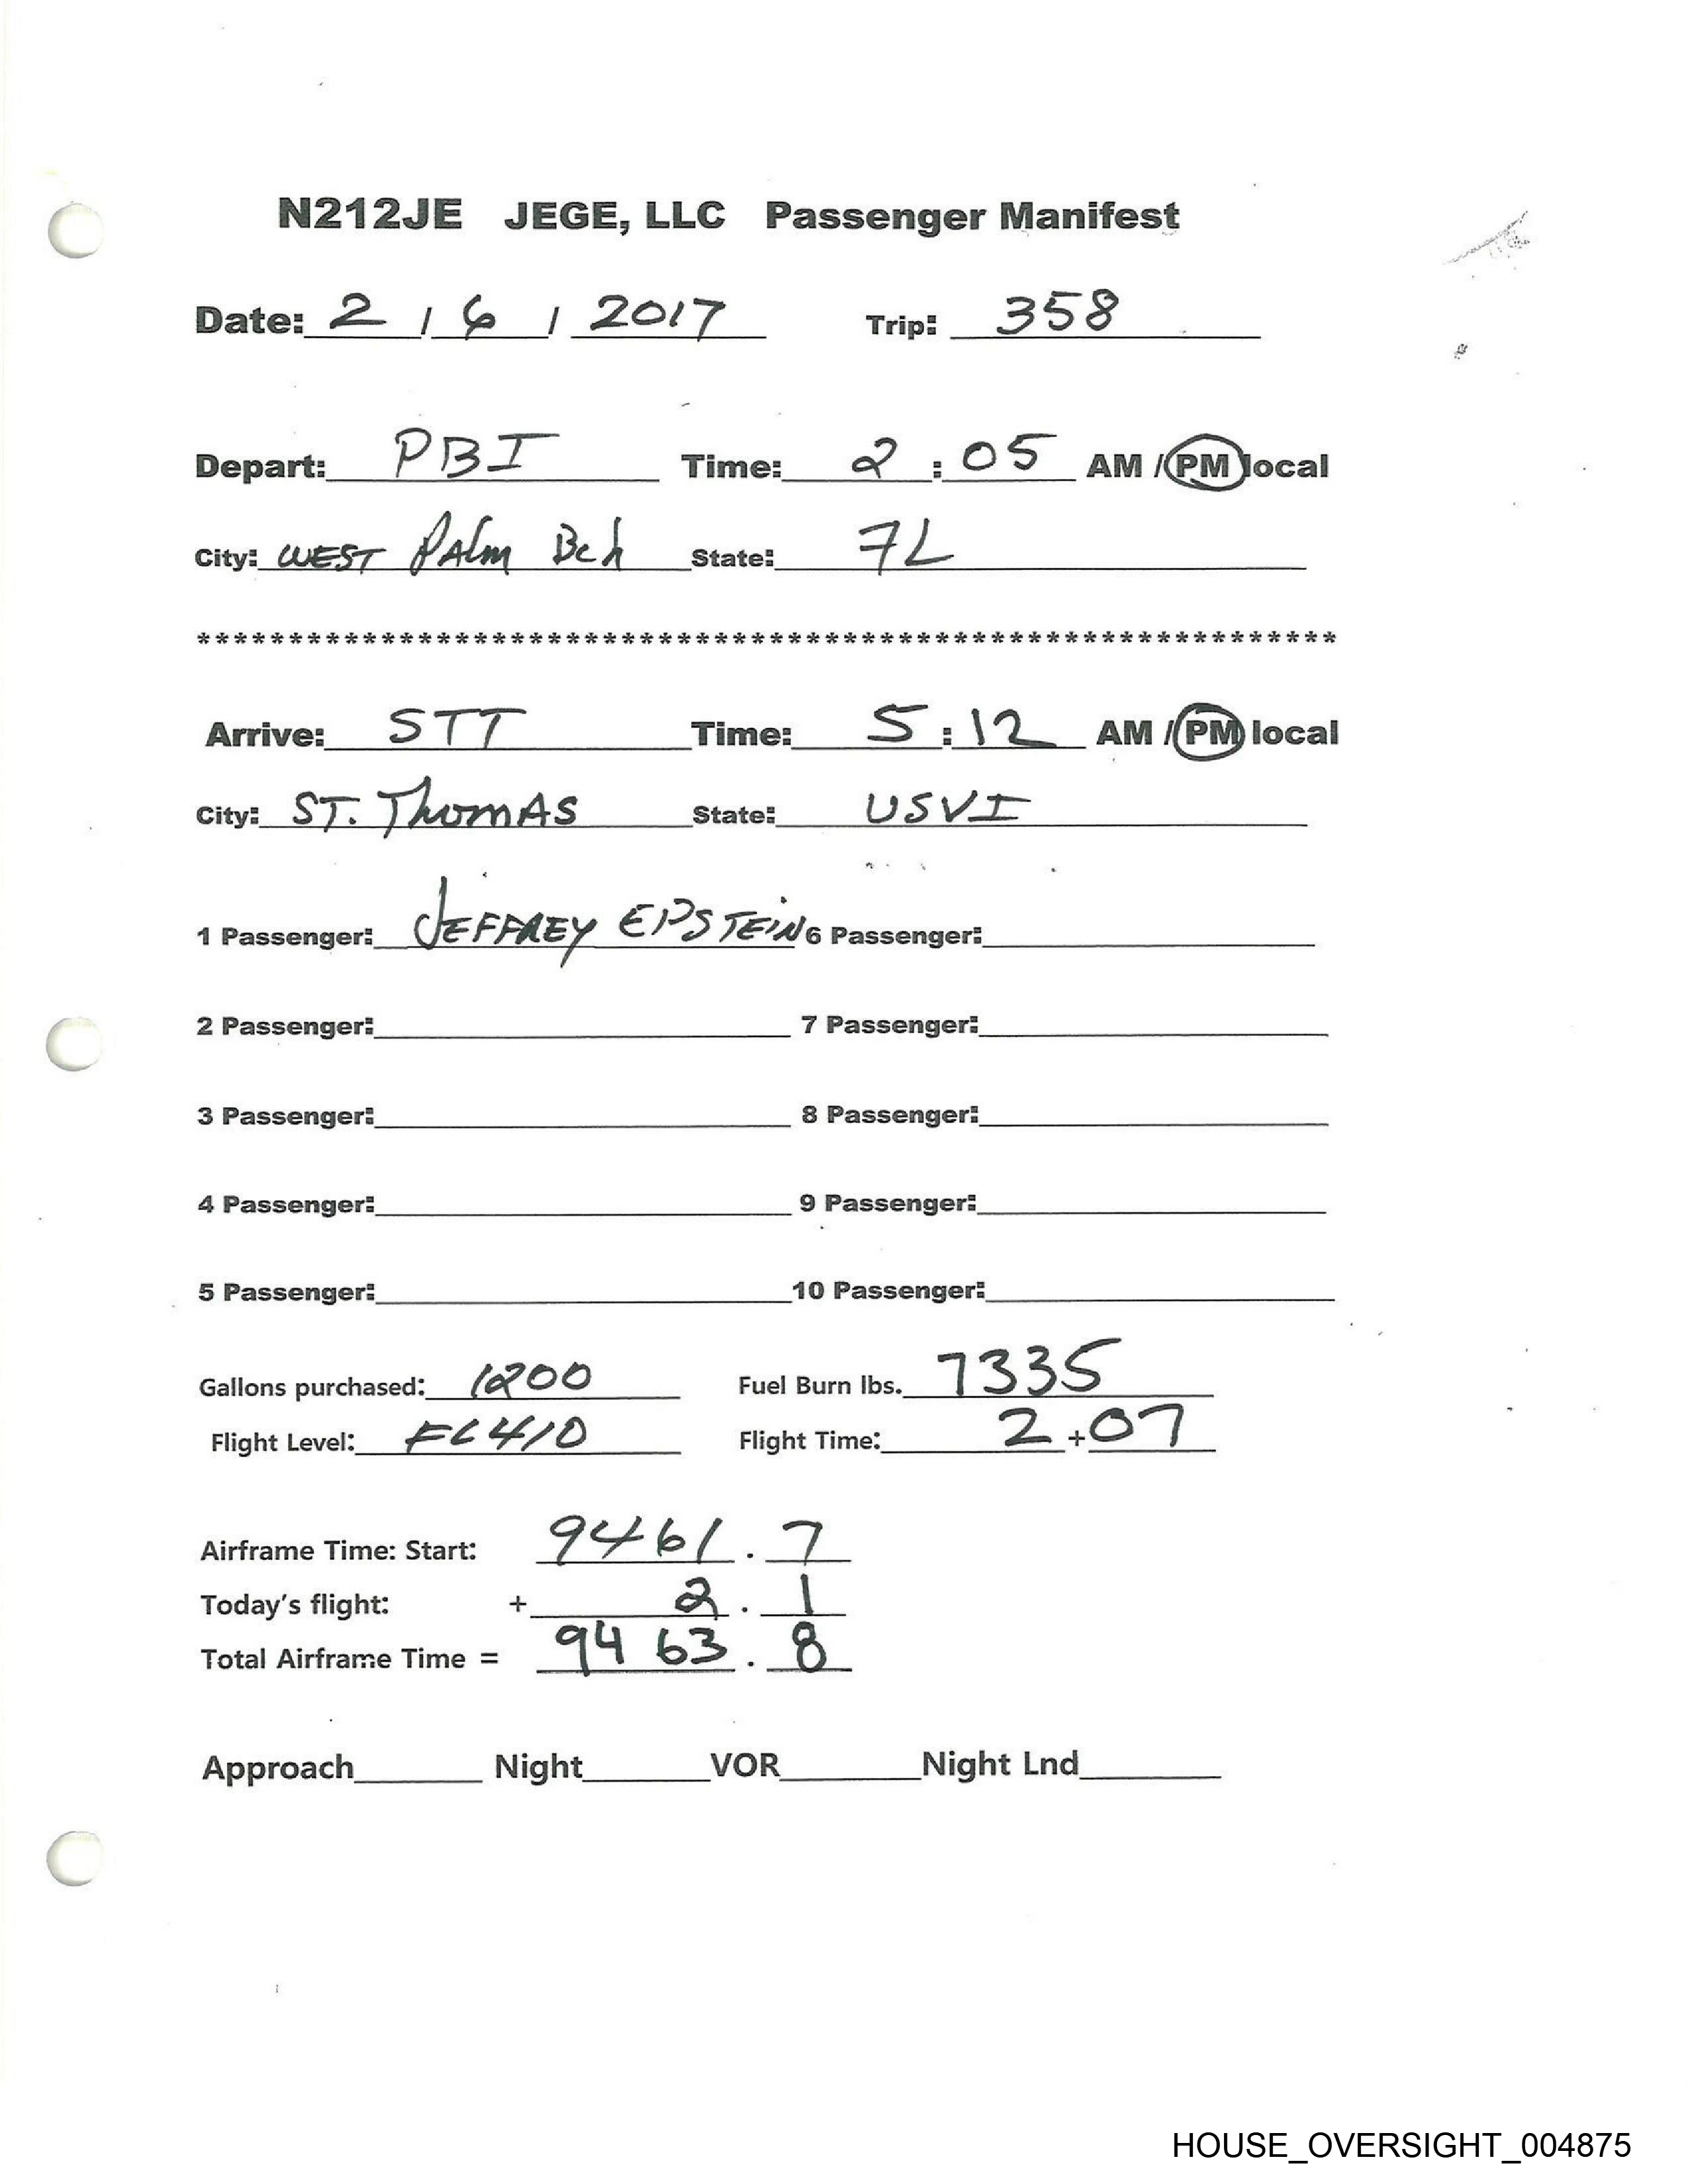 N212JE JEGE, LLC Passenger Manifest
Date: 2 / 6 / 2017 Trip: 358
Depart: PBI Time: 2 : 05 AM / PM local
City: WEST PALM Bch State: FL
*************************************************************
Arrive: STT Time: 5 : 12 AM / PM local
City: ST. THOMAS State: USVI
1 Passenger: JEFFREY EPSTEIN 6 Passenger:
2 Passenger: 7 Passenger:
3 Passenger: 8 Passenger:
4 Passenger: 9 Passenger:
5 Passenger: 10 Passenger:
Gallons purchased: 1200 Fuel Burn lbs. 7335
Flight Level: FL410 Flight Time: 2 + 07
Airframe Time: Start: 9461 . 7
Today's flight: + 2 . 1
Total Airframe Time = 9463 . 8
Approach Night VOR Night Lnd
HOUSE_OVERSIGHT_004875